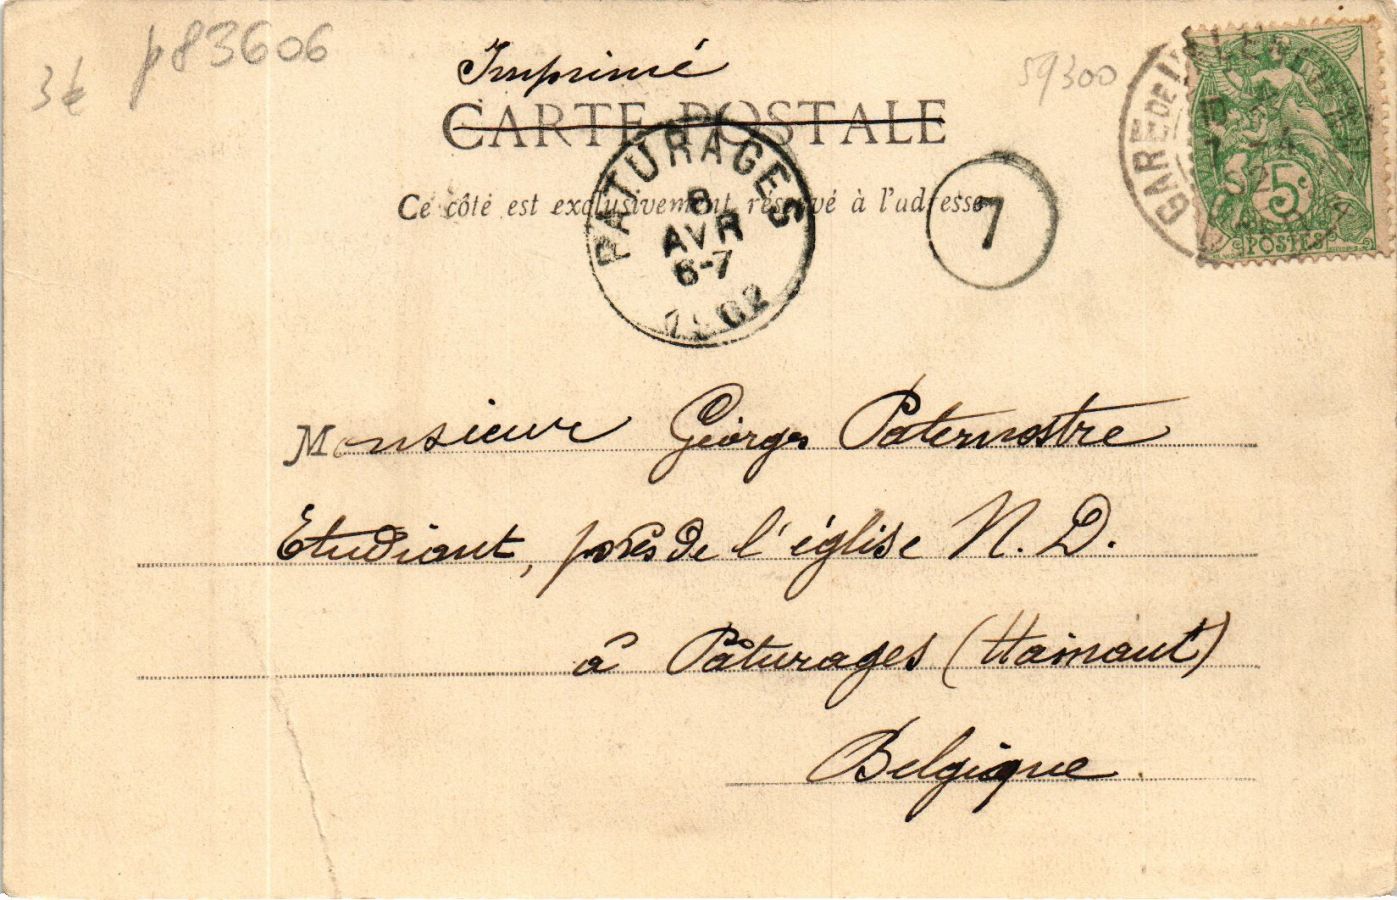 p83606
3€
Imprimé
59300
CARTE POSTALE
Ce côté est exclusivement réservé à l'adresse
PATURAGES
8
AVR
6-7
1902
7
GARE DE
5c
POSTES
Monsieur Georges Paternostre
Etudiant, près de l'église N. D.
à Pâturages (Hainaut)
Belgique